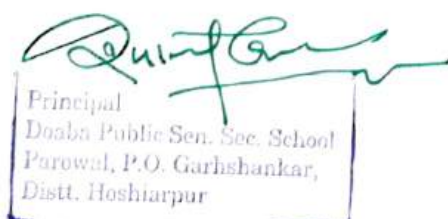 Principal
Doaba Public Sen. Sec. School
Parowal, P.O. Garhshankar,
Distt. Hoshiarpur